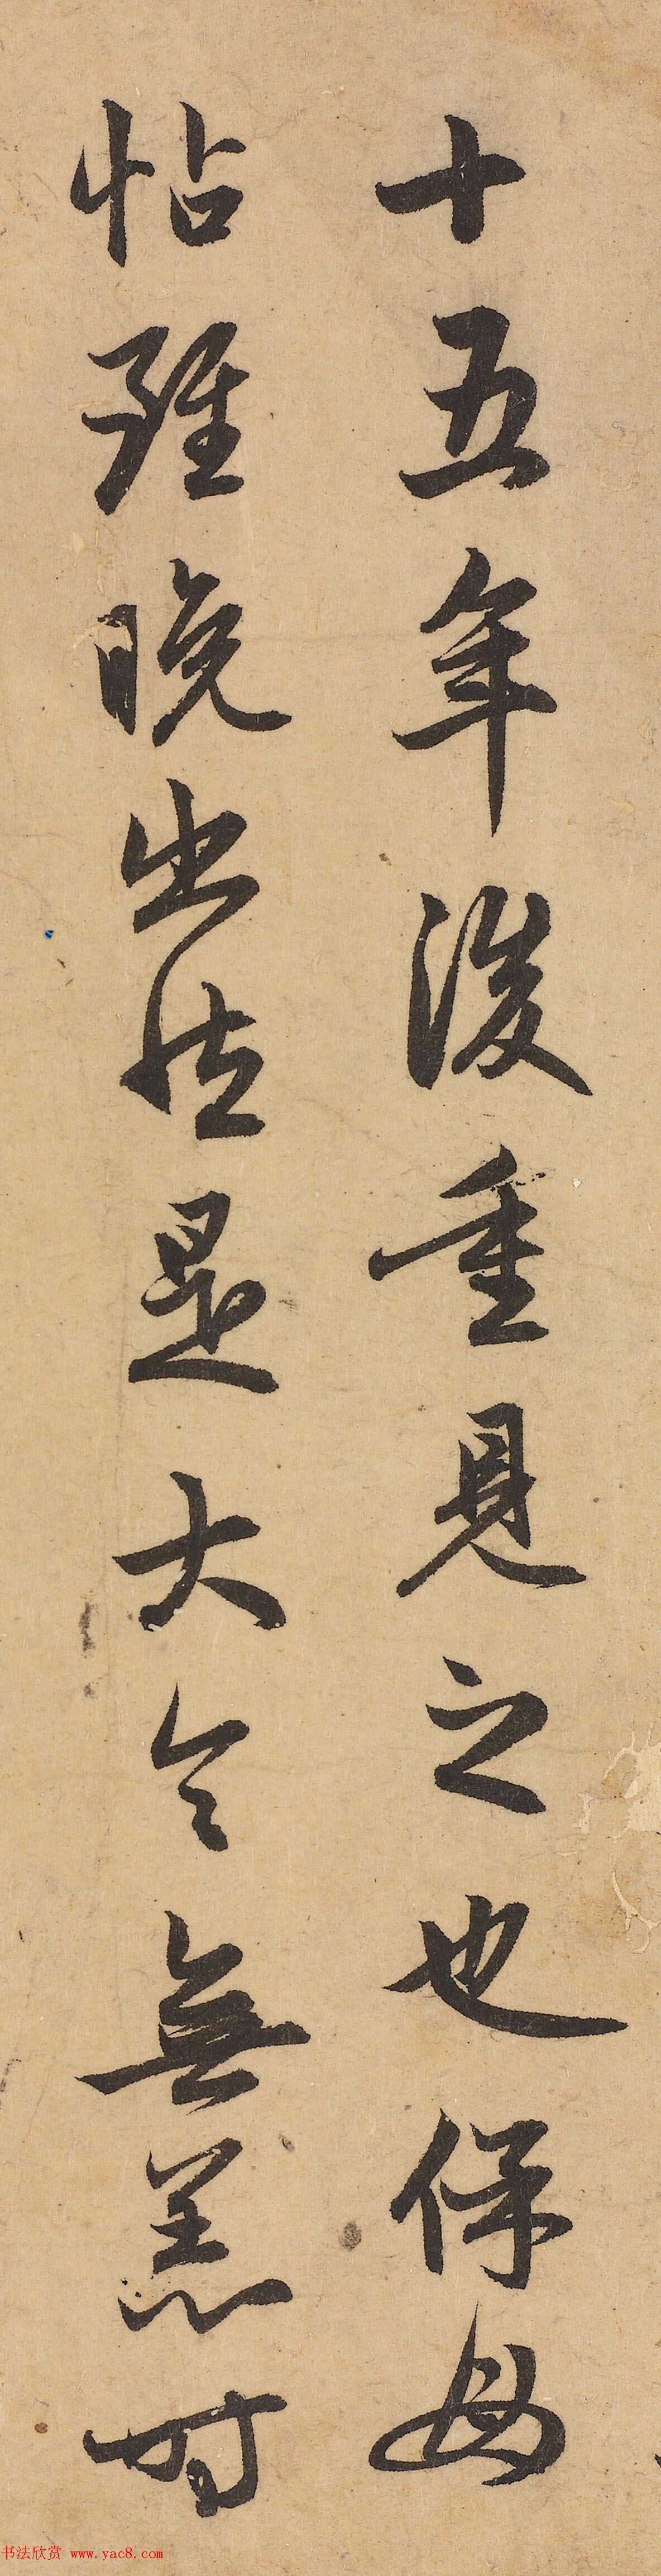 十五年後重見之也保母
帖雖晚出然是大令無恙時
书法欣赏 www.yac8.com